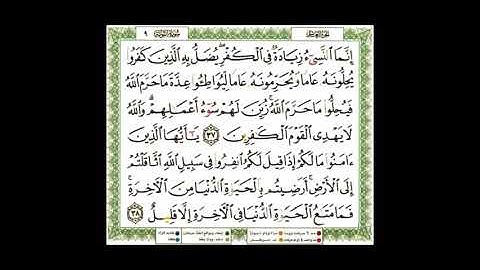 الجزء العاشر سورة التوبة ٩
إِنَّمَا ٱلنَّسِىٓءُ زِيَادَةٌ فِى ٱلْكُفْرِ يُضَلُّ بِهِ ٱلَّذِينَ كَفَرُوا۟
يُحِلُّونَهُۥ عَامًا وَيُحَرِّمُونَهُۥ عَامًا لِّيُوَاطِـُٔوا۟ عِدَّةَ مَا حَرَّمَ ٱللَّهُ
فَيُحِلُّوا۟ مَا حَرَّمَ ٱللَّهُ ۚ زُيِّنَ لَهُمْ سُوٓءُ أَعْمَـٰلِهِمْ ۗ وَٱللَّهُ
لَا يَهْدِى ٱلْقَوْمَ ٱلْكَـٰفِرِينَ ٣٧ يَـٰٓأَيُّهَا ٱلَّذِينَ
ءَامَنُوا۟ مَا لَكُمْ إِذَا قِيلَ لَكُمُ ٱنفِرُوا۟ فِى سَبِيلِ ٱللَّهِ ٱثَّاقَلْتُمْ
إِلَى ٱلْأَرْضِ ۚ أَرَضِيتُم بِٱلْحَيَوٰةِ ٱلدُّنْيَا مِنَ ٱلْـَٔاخِرَةِ ۚ
فَمَا مَتَـٰعُ ٱلْحَيَوٰةِ ٱلدُّنْيَا فِى ٱلْـَٔاخِرَةِ إِلَّا قَلِيلٌ ٣٨